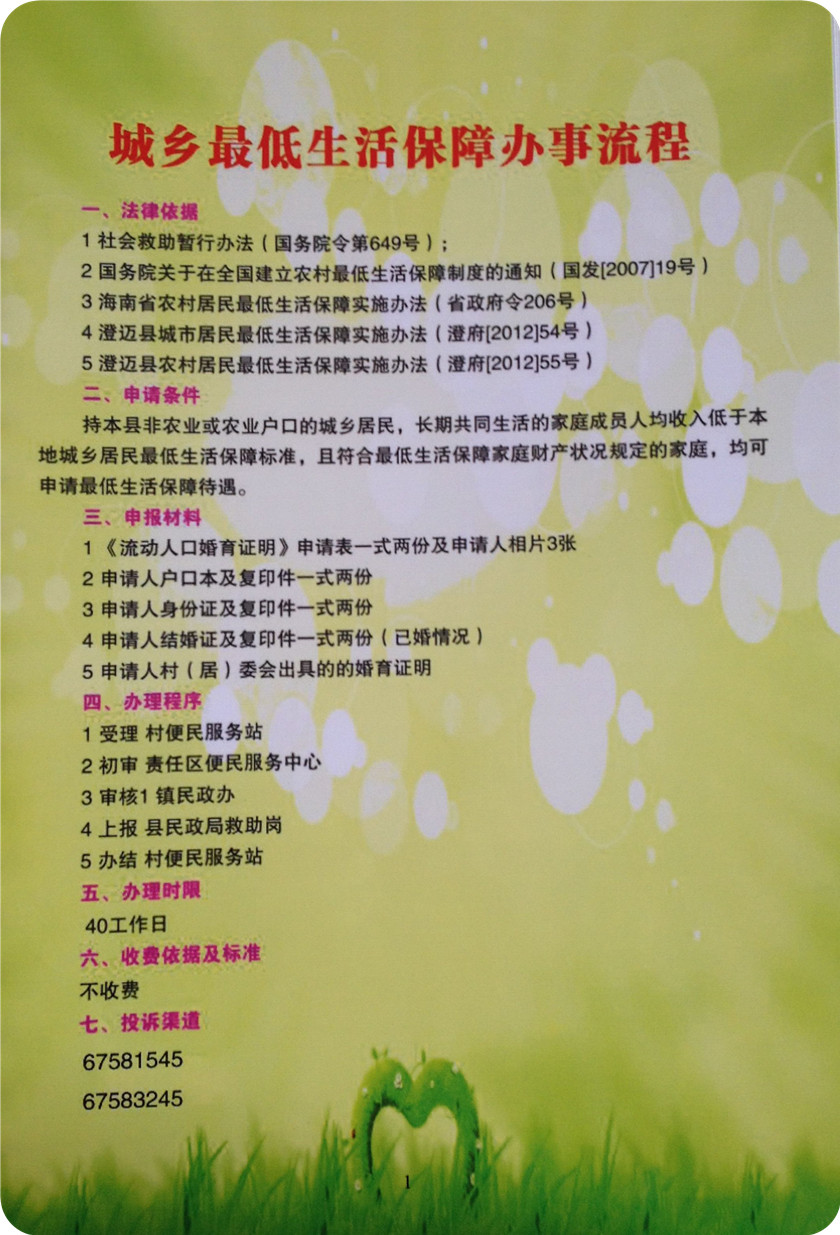 城乡最低生活保障办事流程
一、法律依据
1 社会救助暂行办法（国务院令第649号）；
2 国务院关于在全国建立农村最低生活保障制度的通知（国发[2007]19号）
3 海南省农村居民最低生活保障实施办法（省政府令206号）
4 澄迈县城市居民最低生活保障实施办法（澄府[2012]54号）
5 澄迈县农村居民最低生活保障实施办法（澄府[2012]55号）
二、申请条件
持本县非农业或农业户口的城乡居民，长期共同生活的家庭成员人均收入低于本
地城乡居民最低生活保障标准，且符合最低生活保障家庭财产状况规定的家庭，均可
申请最低生活保障待遇。
三、申报材料
1 《流动人口婚育证明》申请表一式两份及申请人相片3张
2 申请人户口本及复印件一式两份
3 申请人身份证及复印件一式两份
4 申请人结婚证及复印件一式两份（已婚情况）
5 申请人村（居）委会出具的的婚育证明
四、办理程序
1 受理 村便民服务站
2 初审 责任区便民服务中心
3 审核1 镇民政办
4 上报 县民政局救助岗
5 办结 村便民服务站
五、办理时限
40工作日
六、收费依据及标准
不收费
七、投诉渠道
67581545
67583245
1